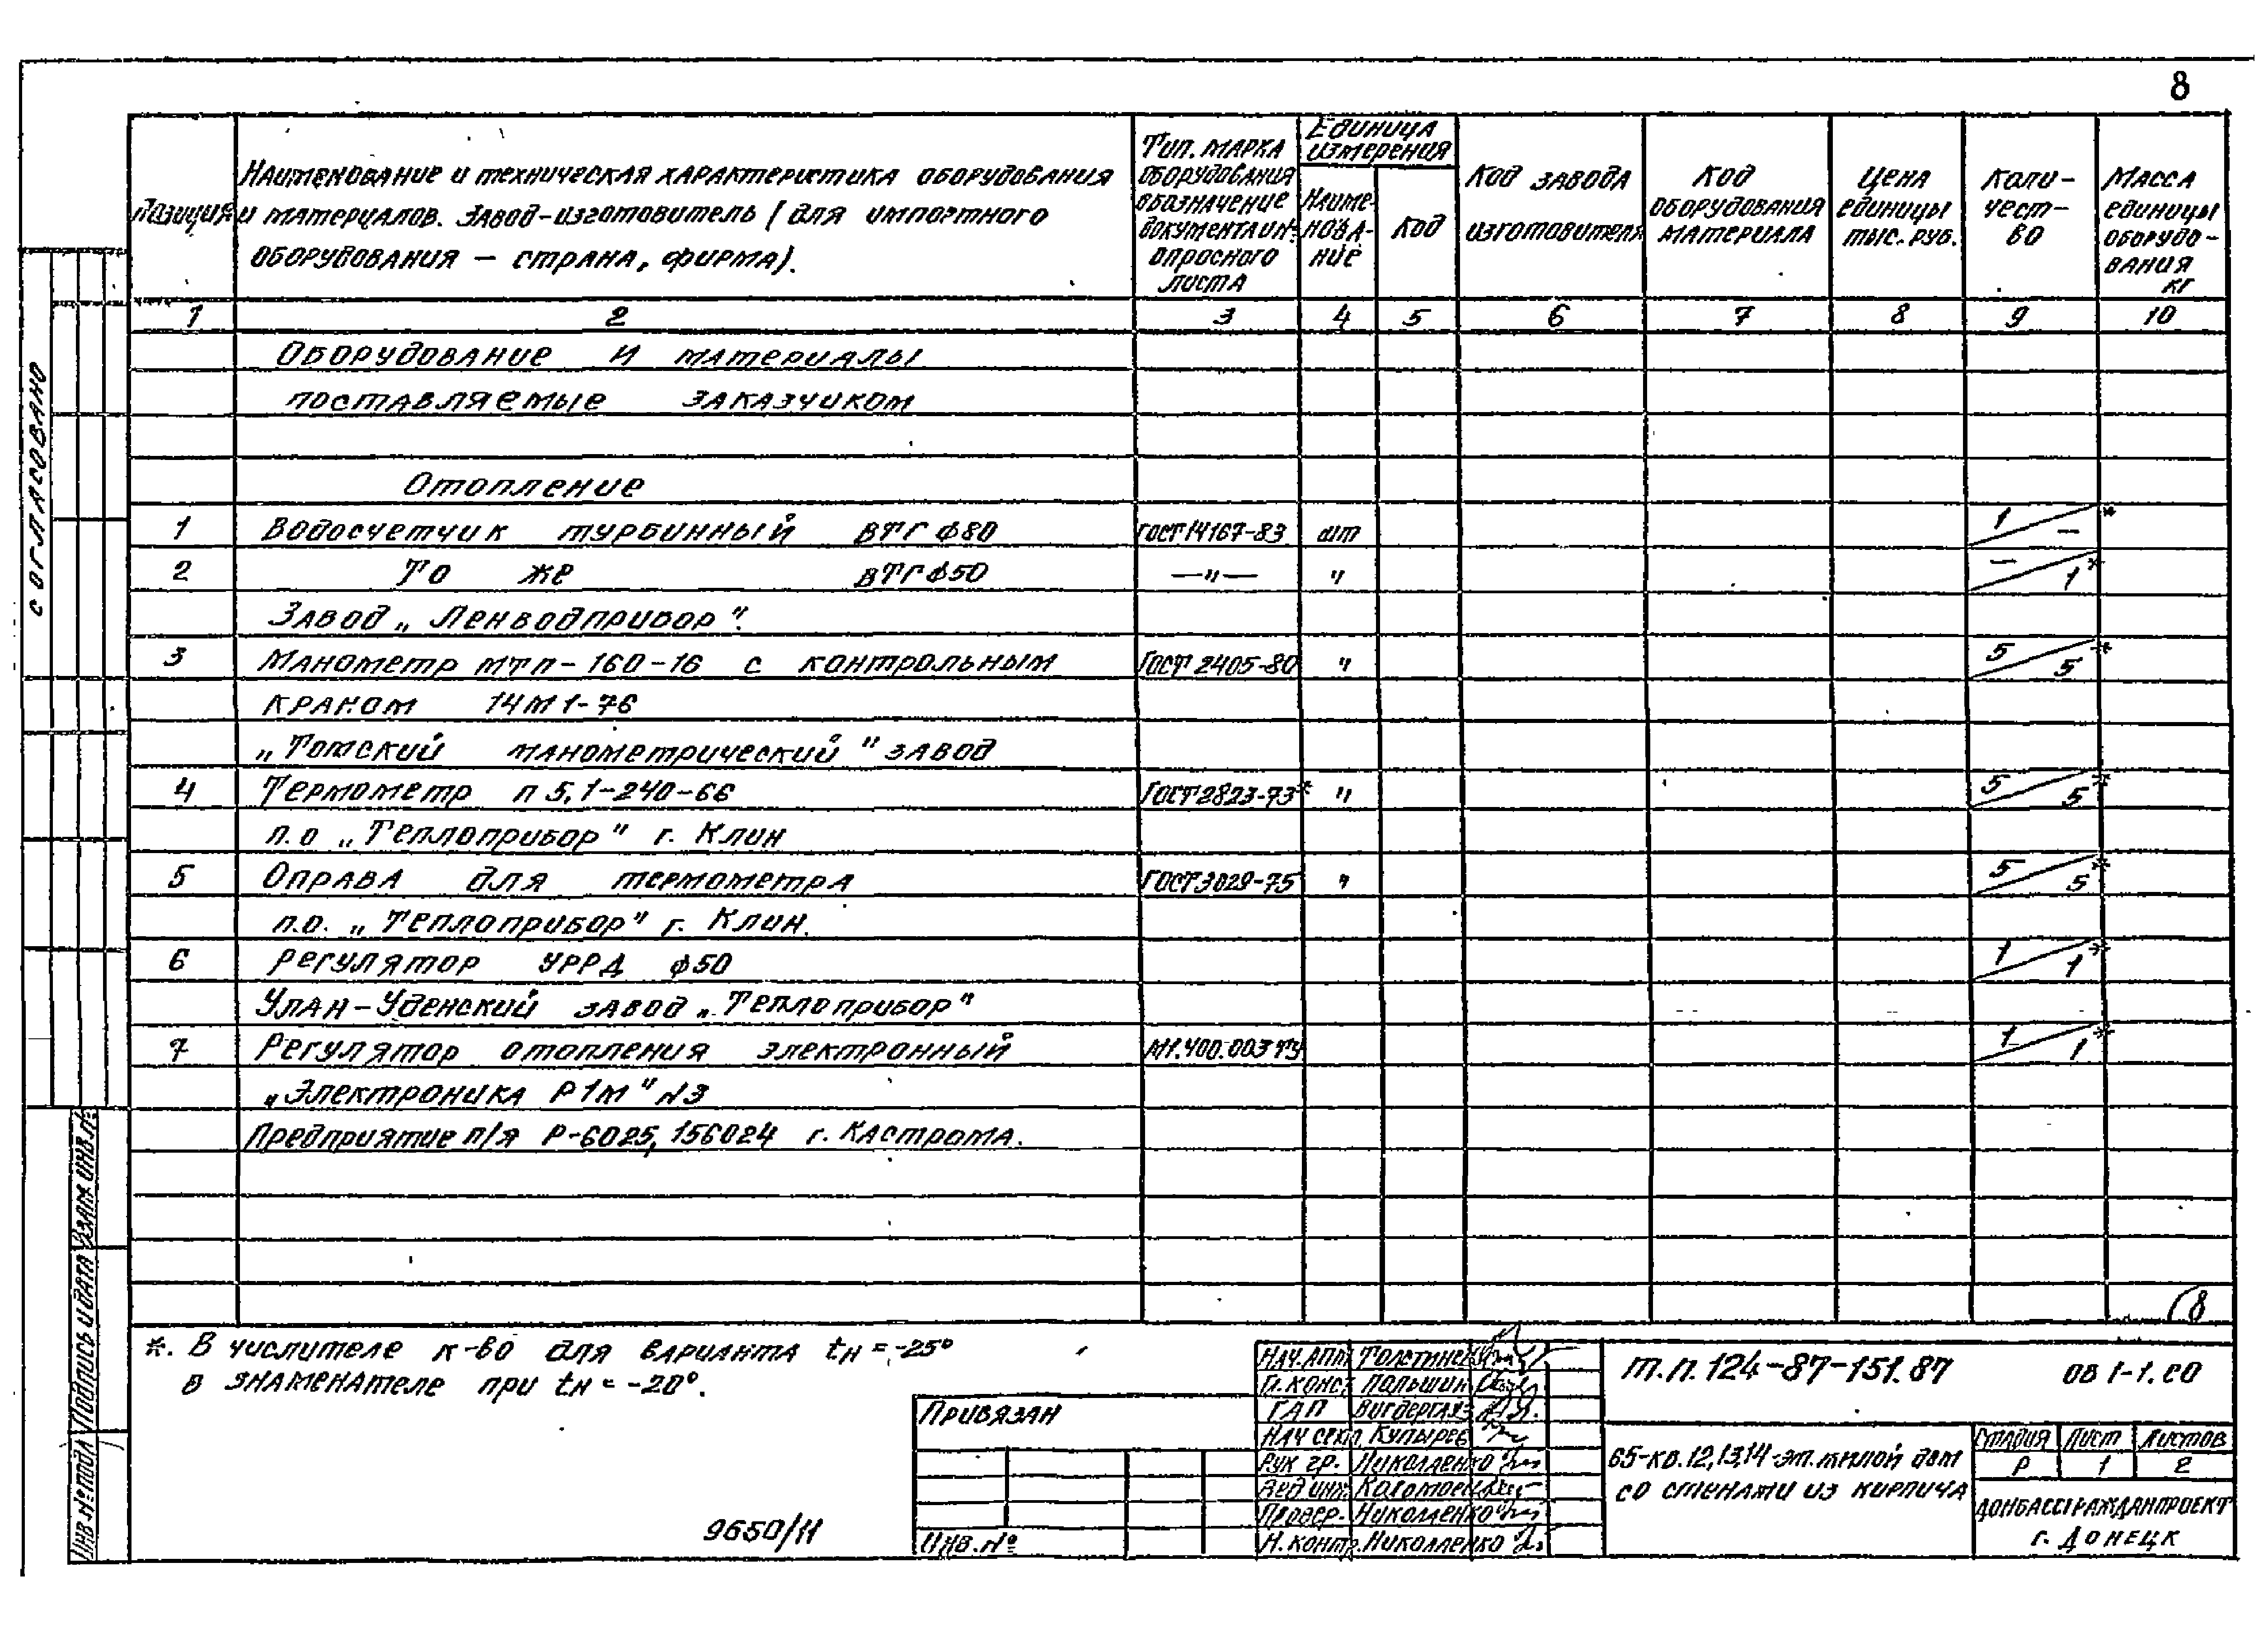 8
Позиция
Наименование и техническая характеристика оборудования
и материалов. Завод-изготовитель (для импортного
оборудования – страна, фирма).
Тип. марка
оборудования
обозначение
документа и №
опросного
листа
Единица
измерения
Наиме-
нова-
ние
Код
Код завода
изготовителя
Код
оборудования
материала
Цена
единицы
тыс. руб.
Коли-
чест-
во
Масса
единицы
оборудо-
вания
кг
1 2 3 4 5 6 7 8 9 10
Оборудование и материалы
поставляемые заказчиком
Отопление
1 Водосчетчик турбинный ВТГ ф80 ГОСТ 14167-83 шт 1/– *
2 То же ВТГ ф50 —"— " –/1 *
Завод „Ленводприбор".
3 Манометр МТП-160-16 с контрольным ГОСТ 2405-80 " 5/5 *
краном 14М1-76
„Томский манометрический" завод
4 Термометр П 5,1-240-66 ГОСТ 2823-73* " 5/5 *
п.о „Теплоприбор" г. Клин
5 Оправа для термометра ГОСТ 3029-75 " 5/5 *
п.о. „Теплоприбор" г. Клин.
6 Регулятор УРРД ф50 1/1 *
Улан-Уденский завод „Теплоприбор"
7 Регулятор отопления электронный М1.400.003 ТУ 1/1 *
„Электроника Р1М" №3
Предприятие п/я Р-6025, 156024 г. Кастрома.
8
*. В числителе к-во для варианта tн = -25°
в знаменателе при tн = -20°.
согласовано
Взам. инв. №
Подпись и дата
Инв. № подл
Привязан
Инв. №
9650/11
Нач. АПМ
Гл. конст Польшин
ГАП Вигдергауз
Нач сект Купырев
Рук гр. Николаенко
Вед инж.
Провер. Николаенко
Н. контр. Николаенко
Т.П. 124-87-151.87 ОВ 1-1. СО
65-кв. 12,13,14-эт. жилой дом
со стенами из кирпича
Стадия Лист Листов
Р 1 2
ДОНБАССГРАЖДАНПРОЕКТ
г. Донецк